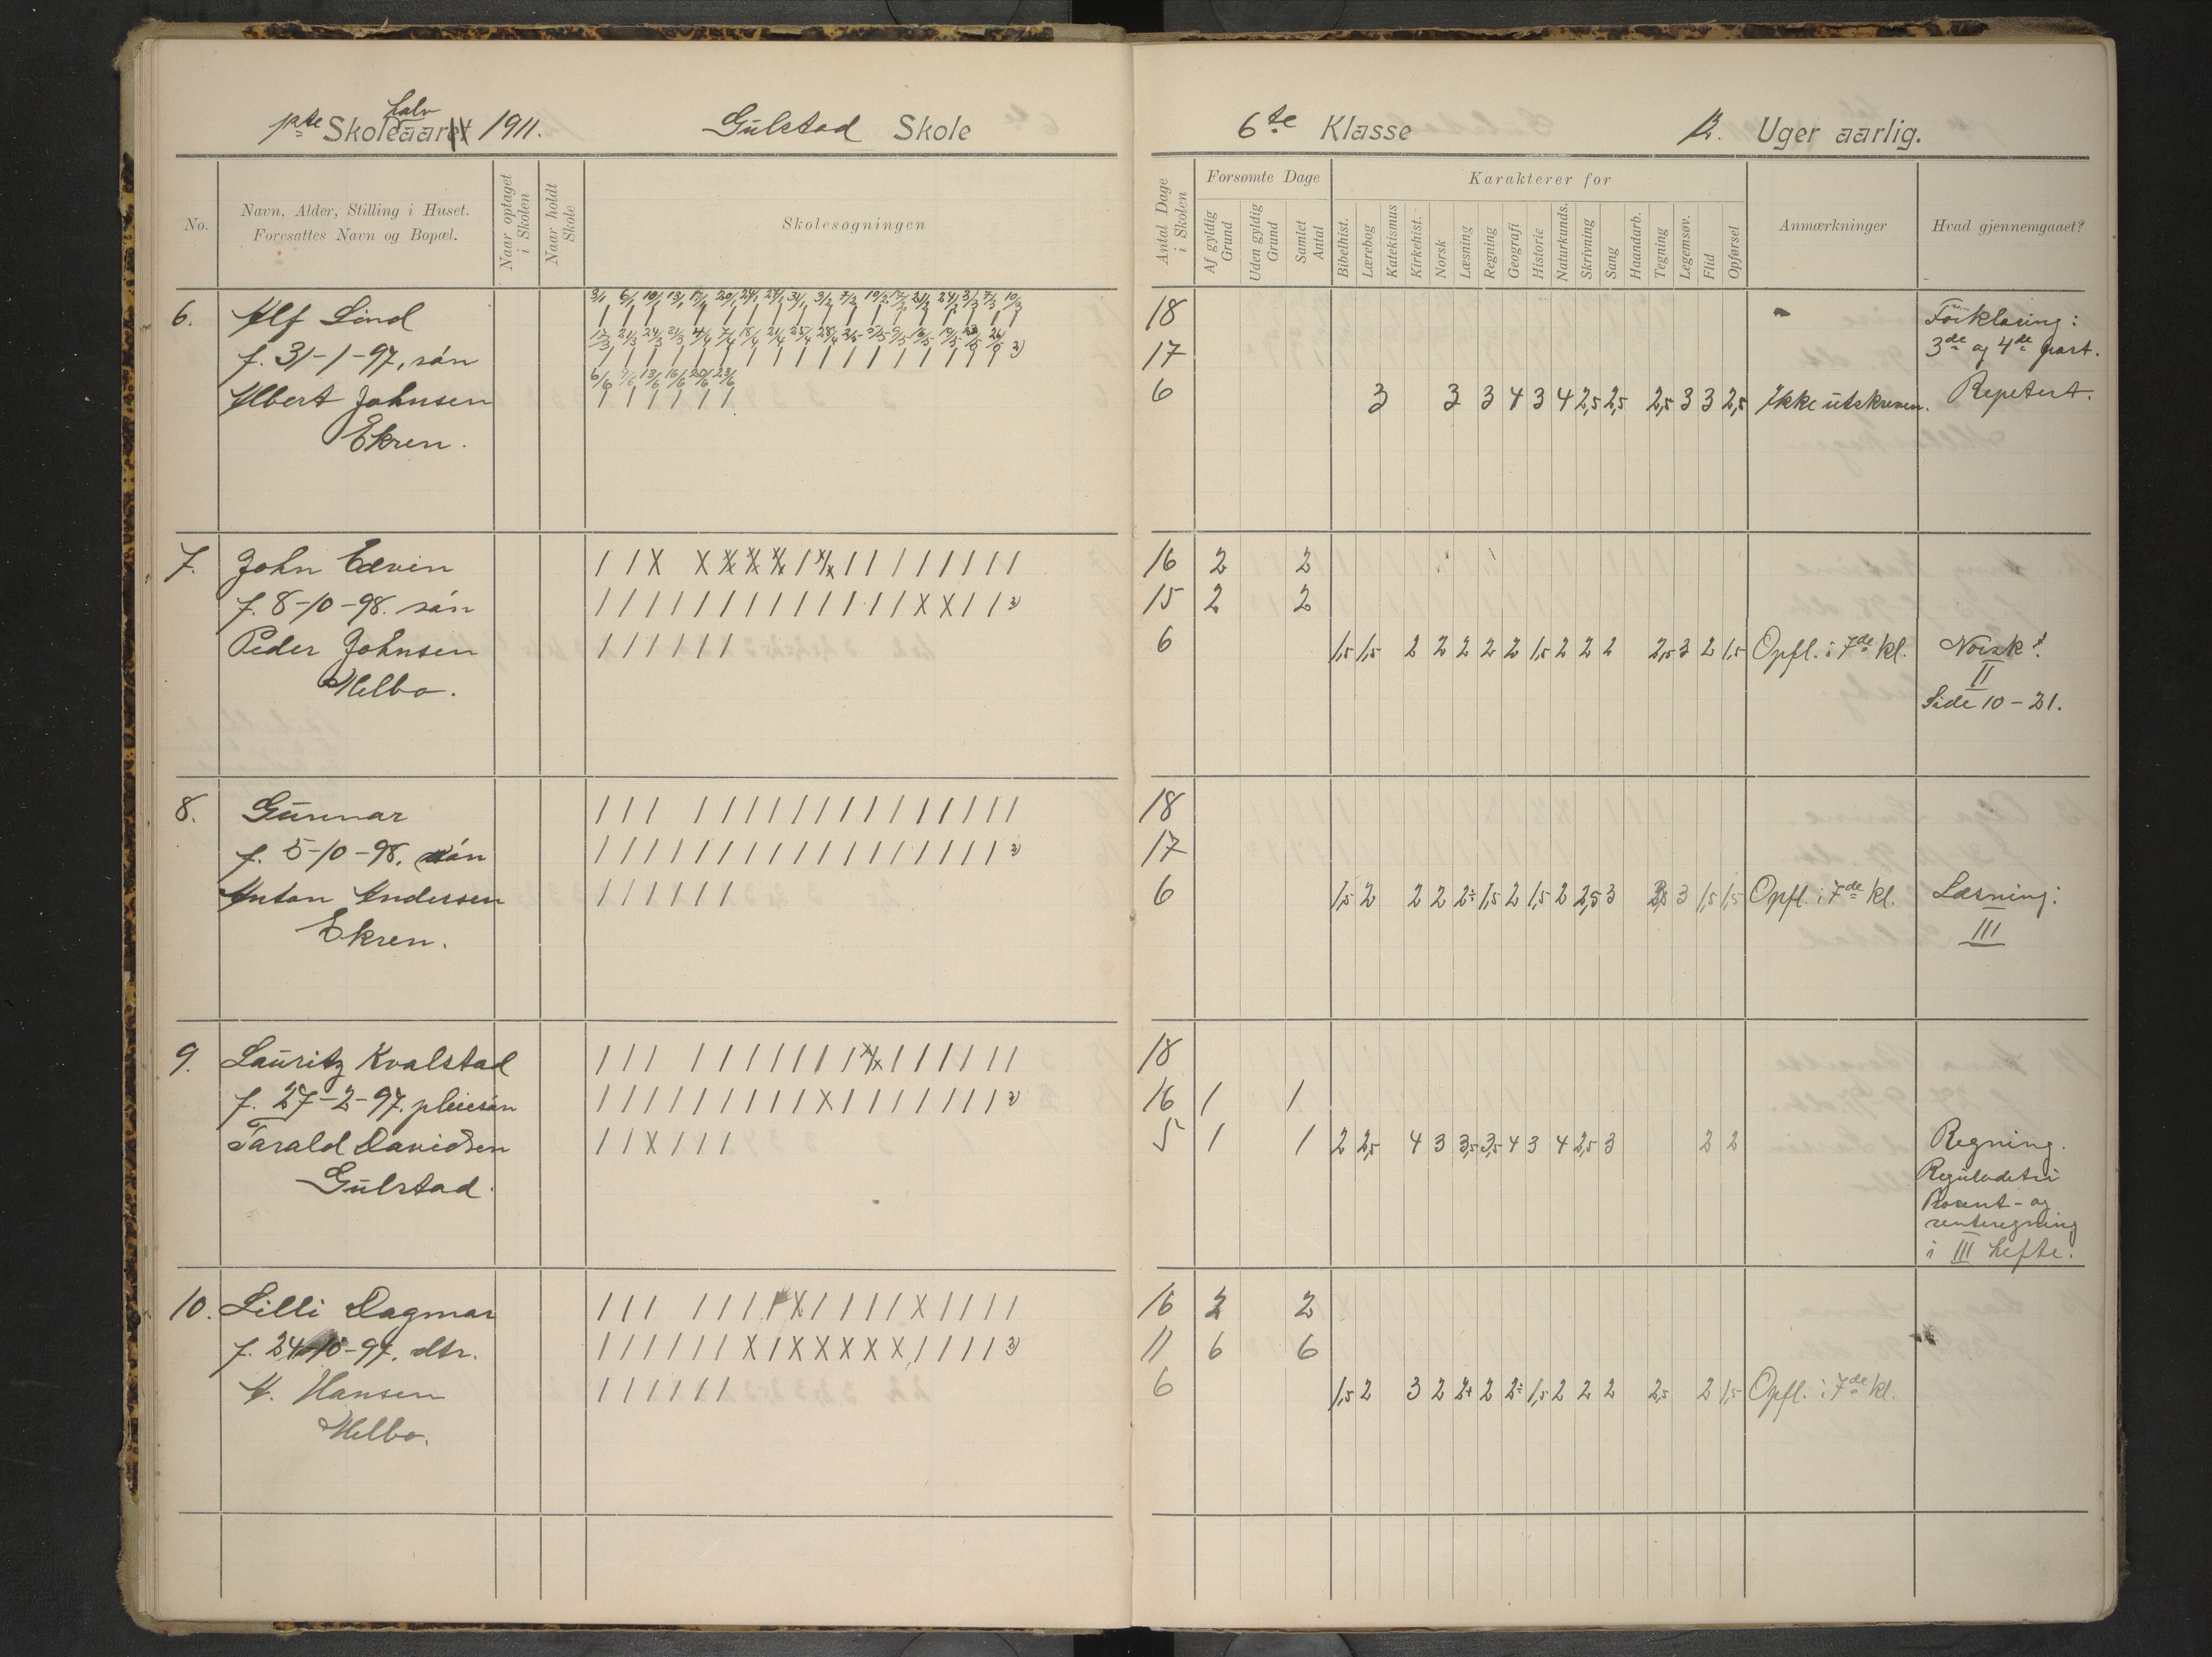 1ste Skolehalvaaret 1911. Gulstad Skole
No.
Navn, Alder, Stilling i Huset.
Foresattes Navn og Bopæl.
Naar optaget i Skolen
Naar holdt Skole
Skolesøgningen
6. Alf Lind
f. 31-1-97, søn
Albert Johnsen
Ekren.
3/1 6/1 10/1 13/1 17/1 20/1 24/1 27/1 31/1 3/2 7/2 10/2 17/2 21/2 24/2 3/3 7/3 10/3
6/6 9/6 13/6 16/6 20/6 23/6
7. John Edvin
f. 8-10-98. søn
Peder Johnsen
Melbo.
8. Gunnar
f. 5-10-98. søn
Anton Andersen
Ekren.
9. Lauritz Kvalstad
f. 27-2-97. pleiesøn
Tarald Davidsen
Gulstad.
10. Lilli Dagmar
f. 24-10-97. dtr.
H. Hansen
Melbo.
6te Klasse 12. Uger aarlig.
Antal Dage i Skolen
Forsømte Dage
Af gyldig Grund
Uden gyldig Grund
Samlet Antal
Karakterer for
Bibelhist.
Lærebog
Katekismus
Kirkehist.
Norsk
Læsning
Regning
Geografi
Historie
Naturkunds.
Skrivning
Sang
Haandarb.
Tegning
Legemsøv.
Flid
Opførsel
Anmærkninger
Hvad gjennemgaaet?
18 Forklaring:
17 3de og 4de part.
6 3 3 3 4 3 4 2,5 2,5 2,5 3 3 2,5 Ikke utskreven. Repetert.
16 2 2
15 2 2
6 1,5 1,5 2 2 2 2 2 1,5 2 2 2 2,5 3 2 1,5 Opfl. i 7de kl. Norsk:
II
Side 10-21.
18
17
6 1,5 2 2 2 2÷ 1,5 2 1,5 2 2,5 3 2,5 3 1,5 1,5 Opfl. i 7de kl. Læsning:
III
18
16 1 1
5 1 1 2 2,5 4 3 3,5 3,5 4 3 4 2,5 3 2 2 Regning.
Reguladetri
Prosent- og
renteregning
i III hefte.
16 2 2
11 6 6
6 1,5 2 3 2 2+ 2 2÷ 1,5 2 2 2 2,5 2 1,5 Opfl. i 7de kl.